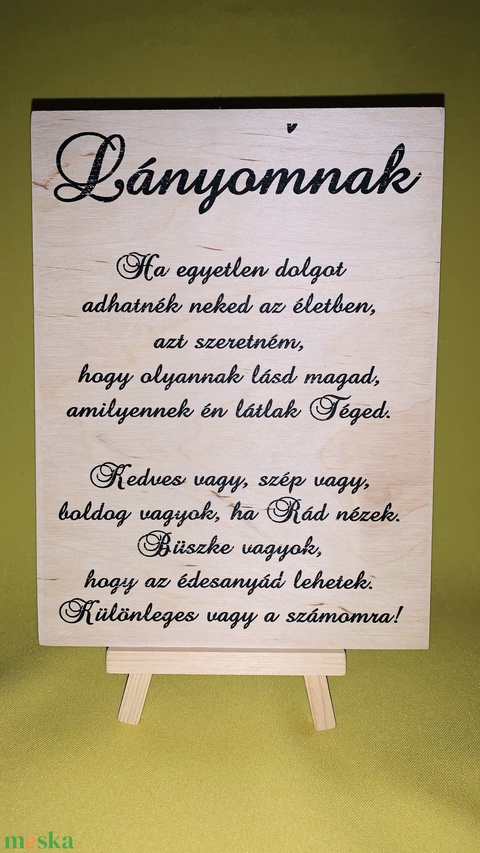 Lányomnak
Ha egyetlen dolgot
adhatnék neked az életben,
azt szeretném,
hogy olyannak lásd magad,
amilyennek én látlak Téged.
Kedves vagy, szép vagy,
boldog vagyok, ha Rád nézek.
Büszke vagyok,
hogy az édesanyád lehetek.
Különleges vagy a számomra!
meska